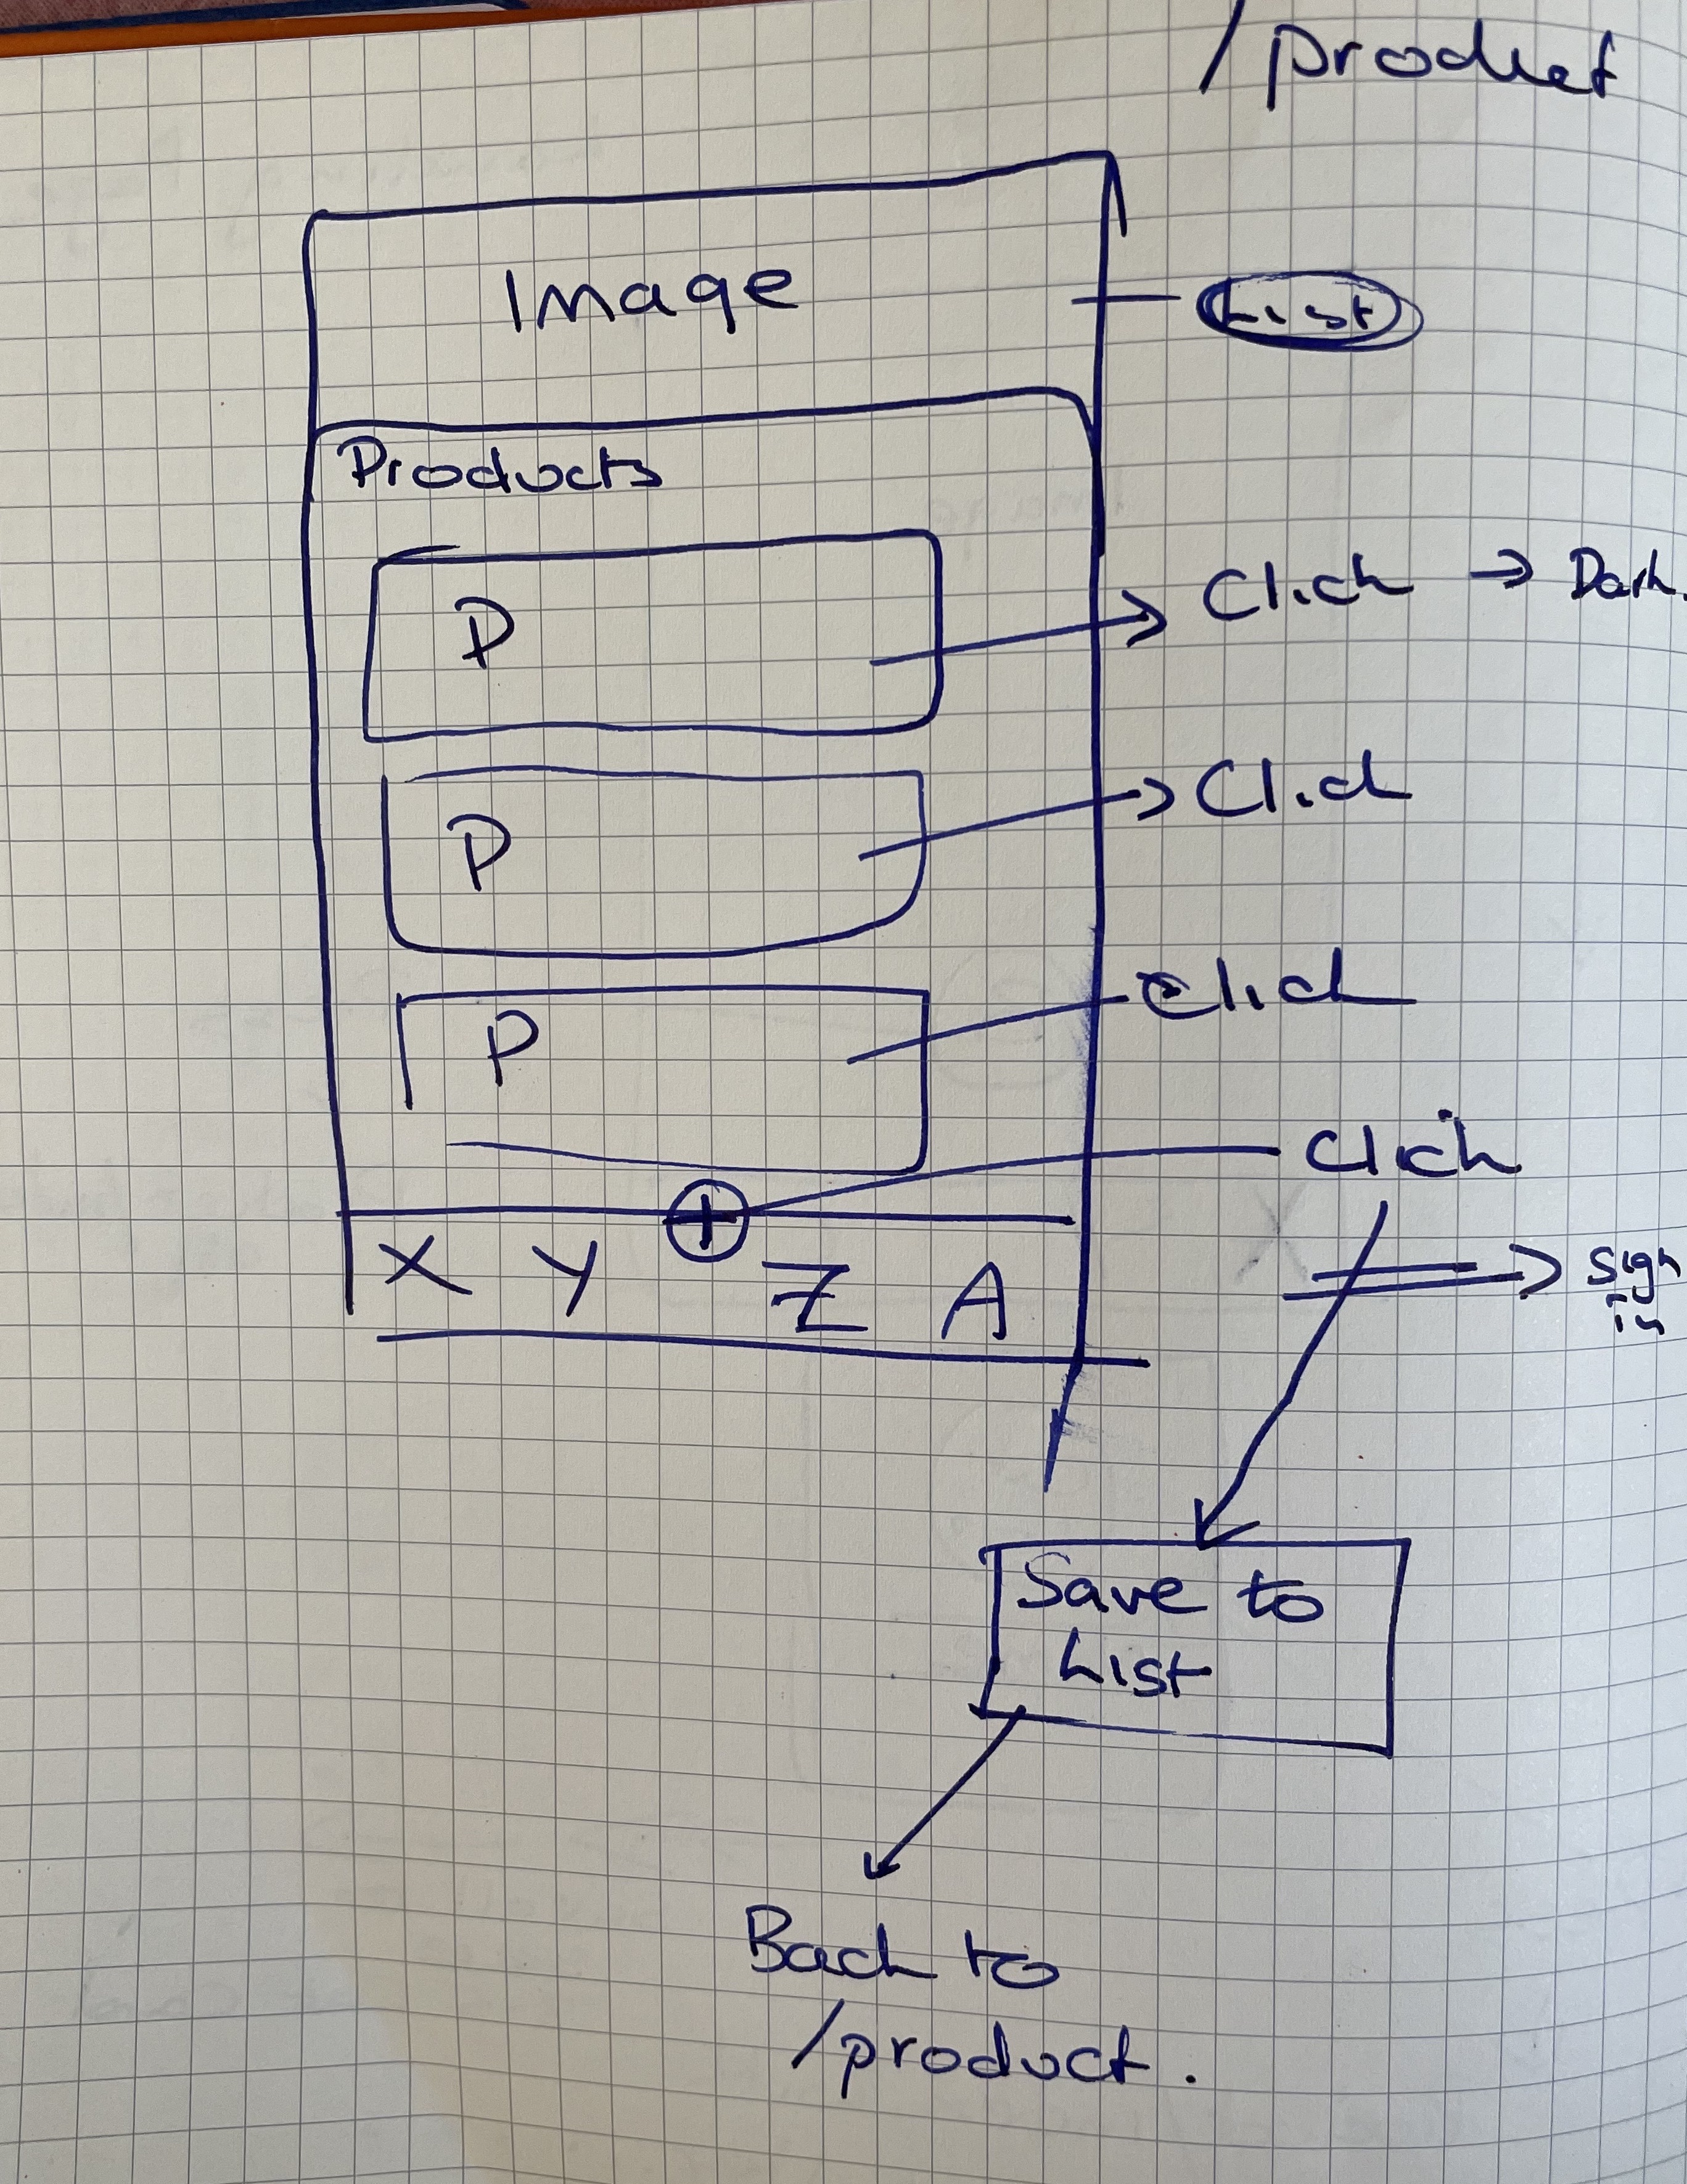 /product
Image
List
Products
P
Click → Dark.
P
Click
P
Click
Click
+
X Y Z A
Sign
in
Save to
List
Back to
/product.